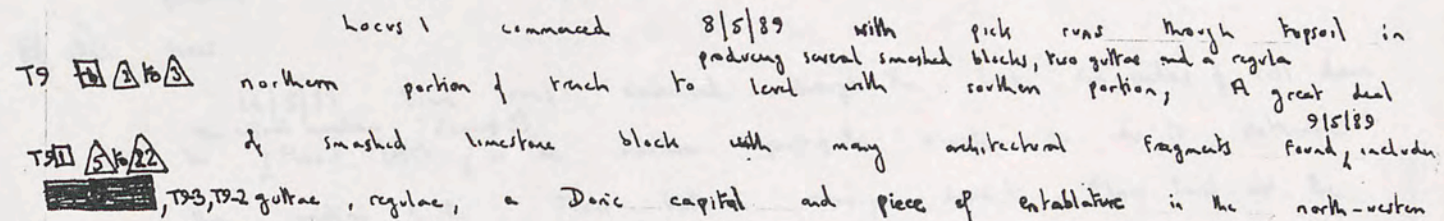 Locus 1 commenced 8/5/89 with pick runs through topsoil in
producing several smashed blocks, two guttae and a regula
T9 2 to 3 northern portion of trench to level with southern portion, A great deal
9/5/89
T9 1 5 to 22 of smashed limestone block with many architectural fragments found, includes
, T9-3, T9-2 guttae, regulae, a Doric capital and piece of entablature in the north-western